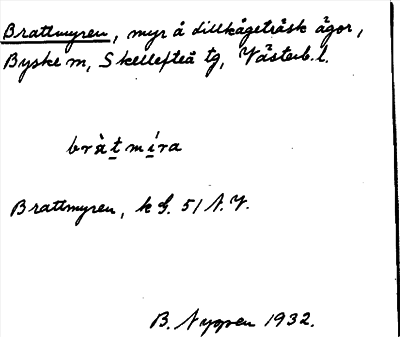 Brattmyren, myr å Lillkågeträsk ägor,
Byske sn, Skellefteå tg, Västerb. l.
bràt míra
Brattmyren, k G. 51 N.V.
B. Nygren 1932.